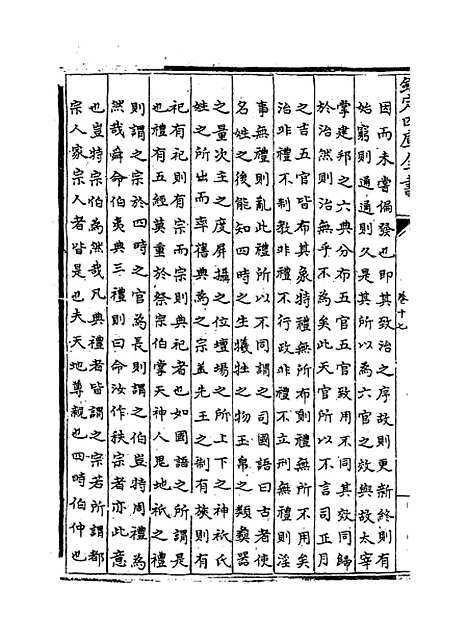 欽定四庫全書
卷十七
因而未嘗偏發也即其致治之序故則更新終則有
始窮則通通則久是其所以為六官之效與故太宰
掌建邦之六典分布五官五官致用不同其效同歸
於治然則治無乎不為矣此天官所以不言司正月
之吉五官皆布其象特禮無所布則禮無所不用矣
治非禮不制教非禮不行政非禮不立刑無禮則淫
事無禮則亂此禮所以不同謂之司國語曰古者使
名姓之後能知四時之生犧牲之物玉帛之類彜器
之量次主之度屏攝之位壇場之所上下之神祇氏
姓之所出而率舊典為之宗蓋先王之制有族則有
祀有祀則有宗而宗則典祀者也如國語之所謂是
也禮有五經莫重於祭宗伯掌天神人鬼地祇之禮
則謂之宗於四時之官為長則謂之伯豈特周禮為
然哉舜命伯夷典三禮則曰命汝作秩宗者亦此意
也豈特宗伯為然哉凡典禮者皆謂之宗若所謂都
宗人家宗人者皆是也夫天地尊親也四時伯仲也